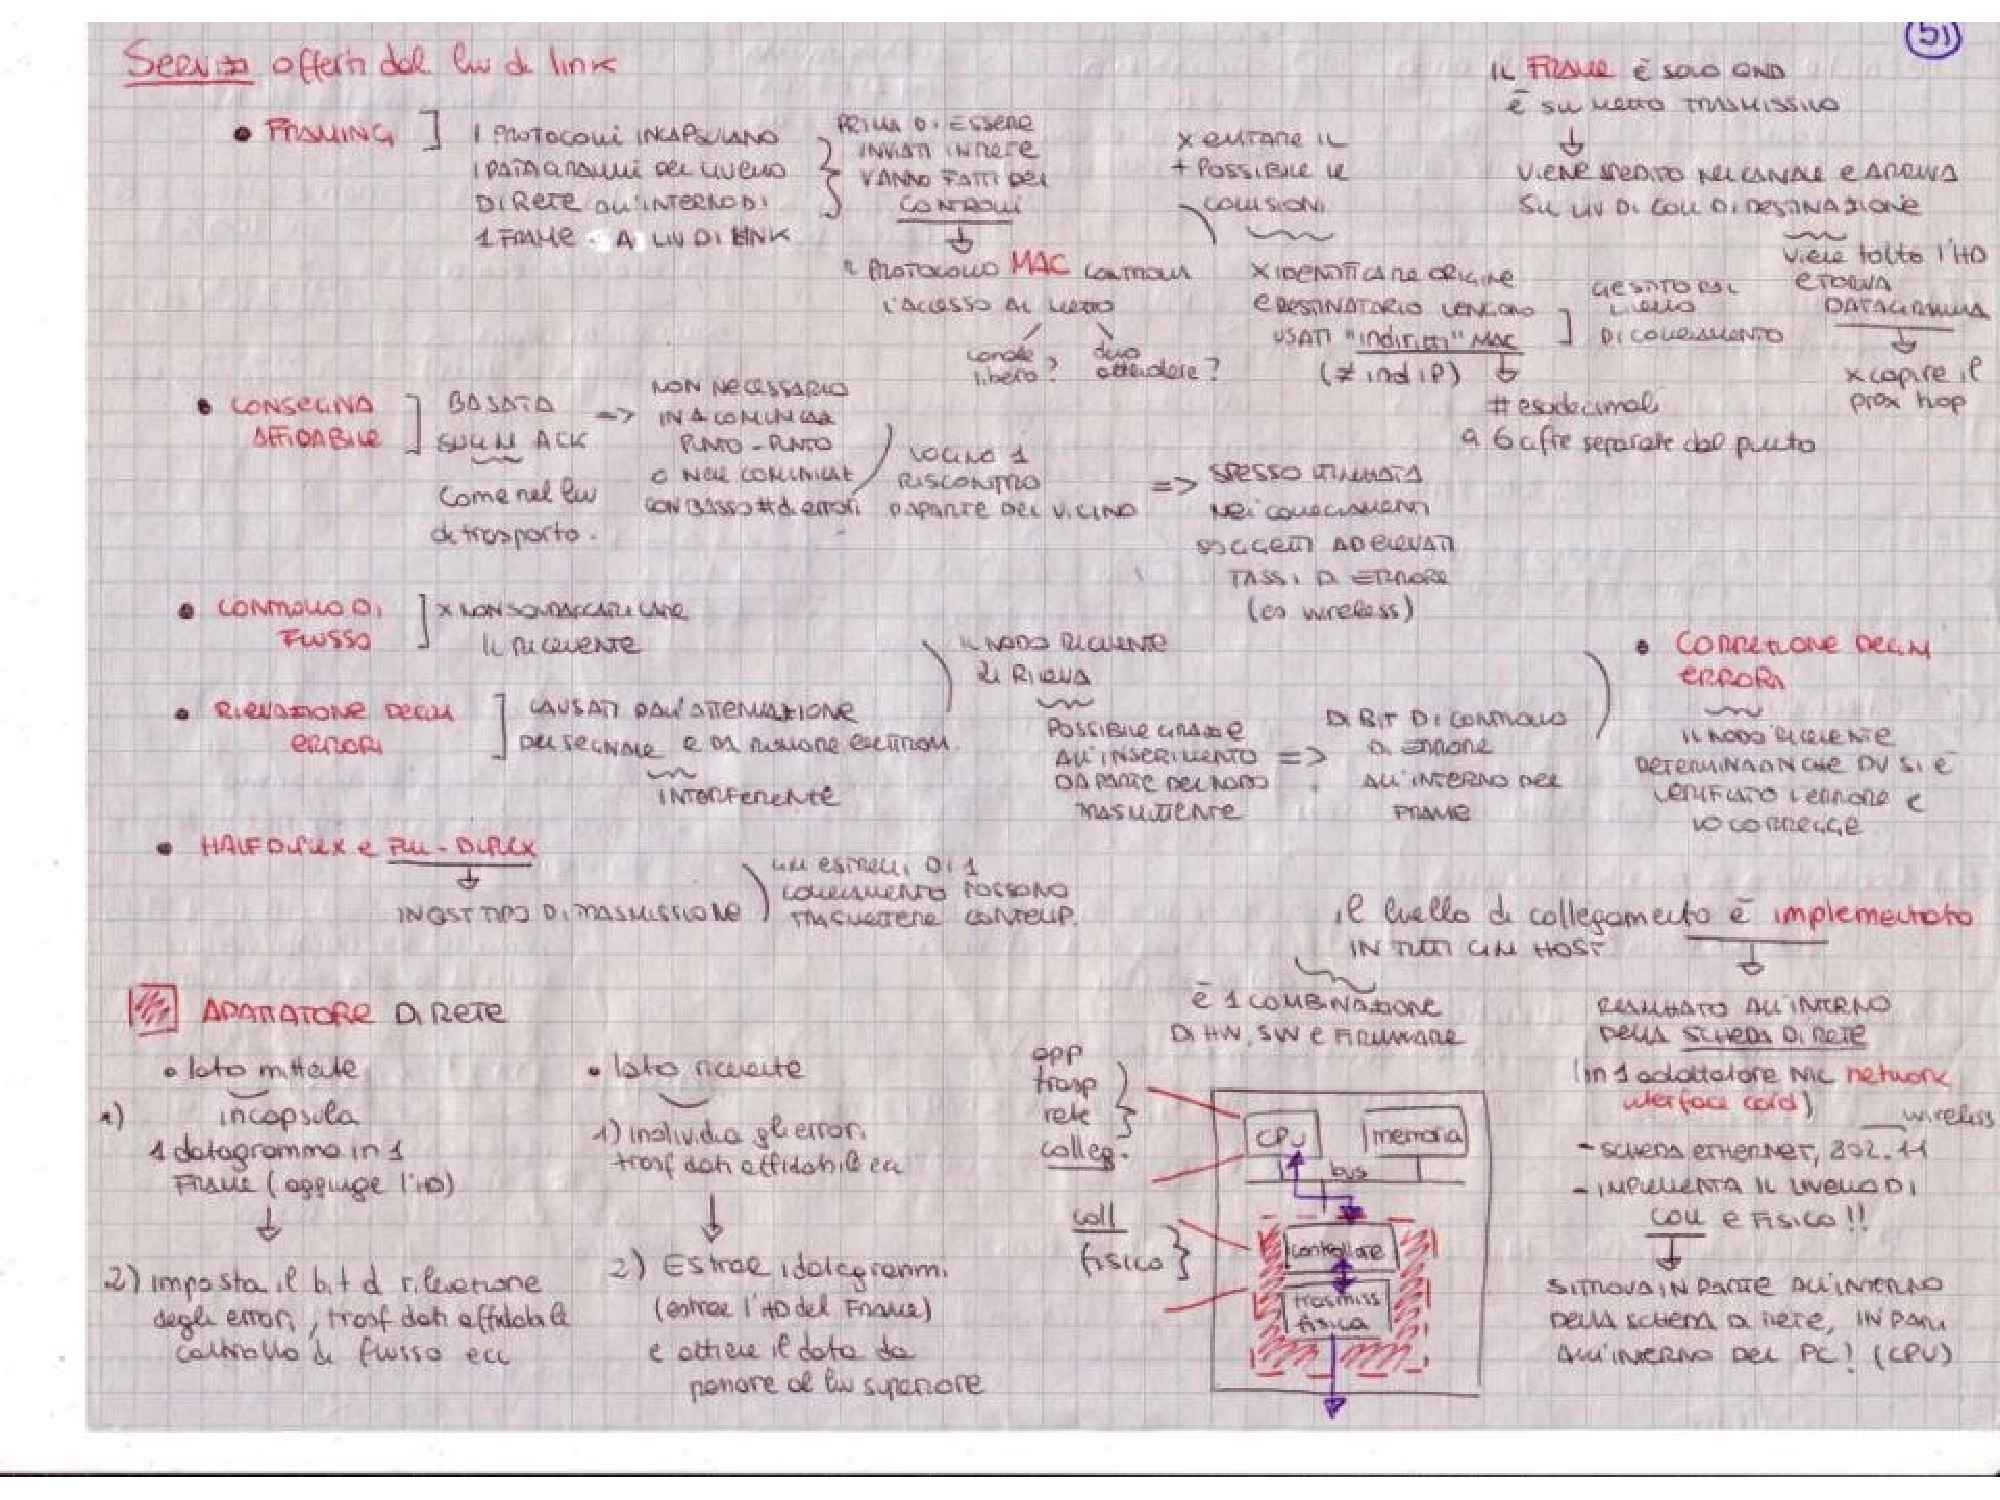 51
Servizi offerti dal liv di link
• FRAMING
I PROTOCOLLI INCAPSULANO
I DATAGRAMMI DEL LIVELLO
DI RETE ALL'INTERNO DI
1 FRAME A LIV DI LINK
PRIMA DI ESSERE
INVIATI IN RETE
VANNO FATTI DEI
CONTROLLI
IL PROTOCOLLO MAC CONTROLLA
L'ACCESSO AL MEZZO
canale libero?
devo attendere?
X EVITARE IL
+ POSSIBILE LE
COLLISIONI
X IDENTIFICARE ORIGINE
E DESTINATARIO VENGONO
USATI "indirizzi" MAC
(≠ ind IP)
# esadecimali
a 6 cifre separate dal punto
GESTITO DAL
LIVELLO
DI COLLEGAMENTO
IL FRAME È SOLO QND
È SU MEZZO TRASMISSIVO
VIENE SPEDITO NEL CANALE E ARRIVA
SU LIV DI COLL DI DESTINAZIONE
viene tolto l'HD
E TORNA
DATAGRAMMA
x capire il
prox hop
• CONSEGNA
AFFIDABILE
BASATA
SUGLI ACK
Come nel liv
di trasporto.
=> NON NECESSARIO
IN 1 COMUNICAZ
PUNTO-PUNTO
O NELLE COMUNICAZ
CON BASSO # di errori
VOGLIO 1
RISCONTRO
DA PARTE DEL VICINO
=> SPESSO UTILIZZATA
NEI COLLEGAMENTI
SOGGETTI AD ELEVATI
TASSI DI ERRORE
(es wireless)
• CONTROLLO DI
FLUSSO
X NON SOVRACCARICARE
IL RICEVENTE
• RILEVAZIONE DEGLI
ERRORI
CAUSATI DALL'ATTENUAZIONE
DEL SEGNALE E DA RUMORE ELETTROM.
INTERFERENTE
IL NODO RICEVENTE
LI RILEVA
POSSIBILE GRAZIE
ALL'INSERIMENTO
DA PARTE DEL NODO
TRASMITTENTE
=> DI BIT DI CONTROLLO
DI ERRORE
ALL'INTERNO DEL
FRAME
• CORREZIONE DEGLI
ERRORI
IL NODO RICEVENTE
DETERMINA ANCHE DV SI È
VERIFICATO L'ERRORE E
LO CORREGGE
• HALF DUPLEX e FULL-DUPLEX
IN QST TIPO DI TRASMISSIONE
GLI ESTREMI DI 1
COLLEGAMENTO POSSONO
TRASMETTERE CONTEMP.
il livello di collegamento è implementato
IN TUTTI GLI HOST.
È 1 COMBINAZIONE
DI HW, SW E FIRMWARE
REALIZZATO ALL'INTERNO
DELLA SCHEDA DI RETE
(in 1 adattatore NIC network
interface card)
wireless
- SCHEDA ETHERNET, 802.11
- IMPLEMENTA IL LIVELLO DI
COLL E FISICO!!
SI TROVA IN PARTE ALL'INTERNO
DELLA SCHEDA DI RETE, IN PARTE
ALL'INTERNO DEL PC! (CPU)
ADATTATORE DI RETE
• lato mittente
1) incapsula
1 datagramma in 1
FRAME (aggiunge l'HD)
2) imposta il bit di rilevazione
degli errori, trasf dati affidabile
controllo di flusso ecc
• lato ricevente
1) individua gli errori
trasf dati affidabile ecc
2) Estrae i datagrammi
(estrae l'HD del Frame)
e ottiene il data da
portare al liv superiore
app
trasp
rete
colleg.
coll
fisico
CPU
memoria
bus
controllore
trasmiss
fisica